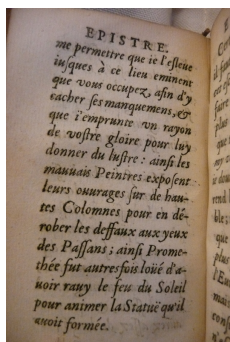 EPISTRE.
me permettre que ie l'esleue
iusques à ce lieu eminent
que vous occupez, afin d'y
cacher ses manquemens, &
que i'emprunte vn rayon
de vostre gloire pour luy
donner du lustre : ainsi les
mauuais Peintres exposent
leurs ouurages sur de hau-
tes Colomnes pour en dé-
rober les deffaux aux yeux
des Passans ; ainsi Prome-
thée fut autresfois loüé d'a-
uoir rauy le feu du Soleil
pour animer la Statuë qu'il
auoit formée.